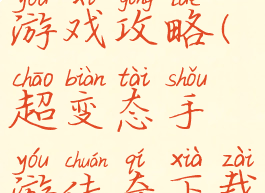 yóu xì gōng lüè
游戏攻略(
chāo biàn tài shǒu
超变态手
yóu chuán qí xià zài
游传奇下载